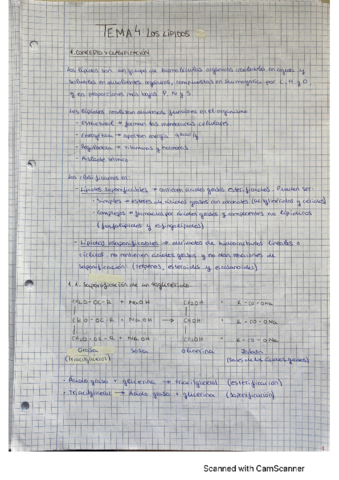 TEMA 4 LOS LÍPIDOS
1. CONCEPTO Y CLASIFICACIÓN
Los lípidos son un grupo de biomoléculas orgánicas insolubles en agua y
solubles en disolventes orgánicos, compuestas en su mayoría por C, H y O,
y en proporciones más bajas P, N y S.
Los lípidos realizan diversas funciones en el organismo
- Estructural → forman las membranas celulares
- Energética → aportan energía
- Reguladora → vitaminas y hormonas
- Aislante térmico
Los clasificamos en:
- Lípidos saponificables → contienen ácidos grasos esterificados. Pueden ser:
- Simples → ésteres de ácidos grasos con alcoholes (acilglicéridos y céridos)
- Complejos → formados por ácidos grasos y componentes no lipídicos
(fosfolípidos y esfingolípidos)
- Lípidos insaponificables → derivados de hidrocarburos lineales o
cíclicos, no contienen ácidos grasos y no dan reacciones de
saponificación (terpenos, esteroides y eicosanoides)
1.1. Saponificación de un triglicérido
CH₂O-OC-R + NaOH CH₂OH + R-CO-ONa
CHO-OC-R + NaOH → CHOH + R-CO-ONa
CH₂O-OC-R + NaOH CH₂OH + R-CO-ONa
Grasa Sosa Glicerina Jabón
(triacilglicerol) (Sales de los ácidos grasos)
· Ácido graso + glicerina → triacilglicerol (esterificación)
· Triacilglicerol → Ácido graso + glicerina (saponificación)
Scanned with CamScanner